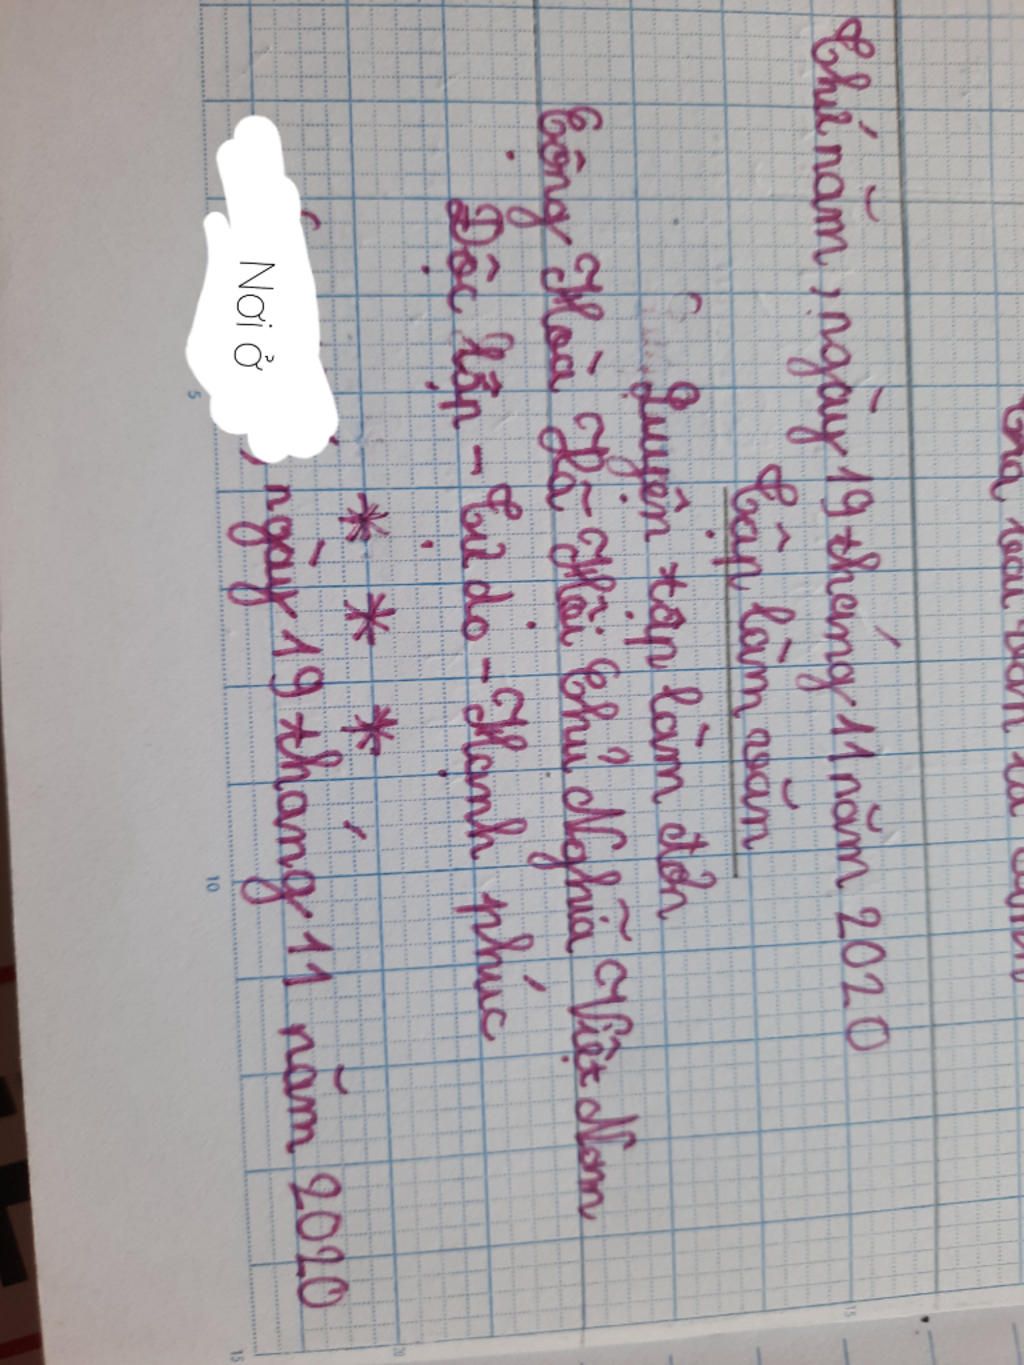 Thứ năm, ngày 19 tháng 11 năm 2020
Tập làm văn
Luyện tập làm đơn
Cộng Hoà Xã Hội Chủ Nghĩa Việt Nam
Độc lập - Tự do - Hạnh phúc
* * *
Nơi ở, ngày 19 tháng 11 năm 2020
5
10
15
20
15